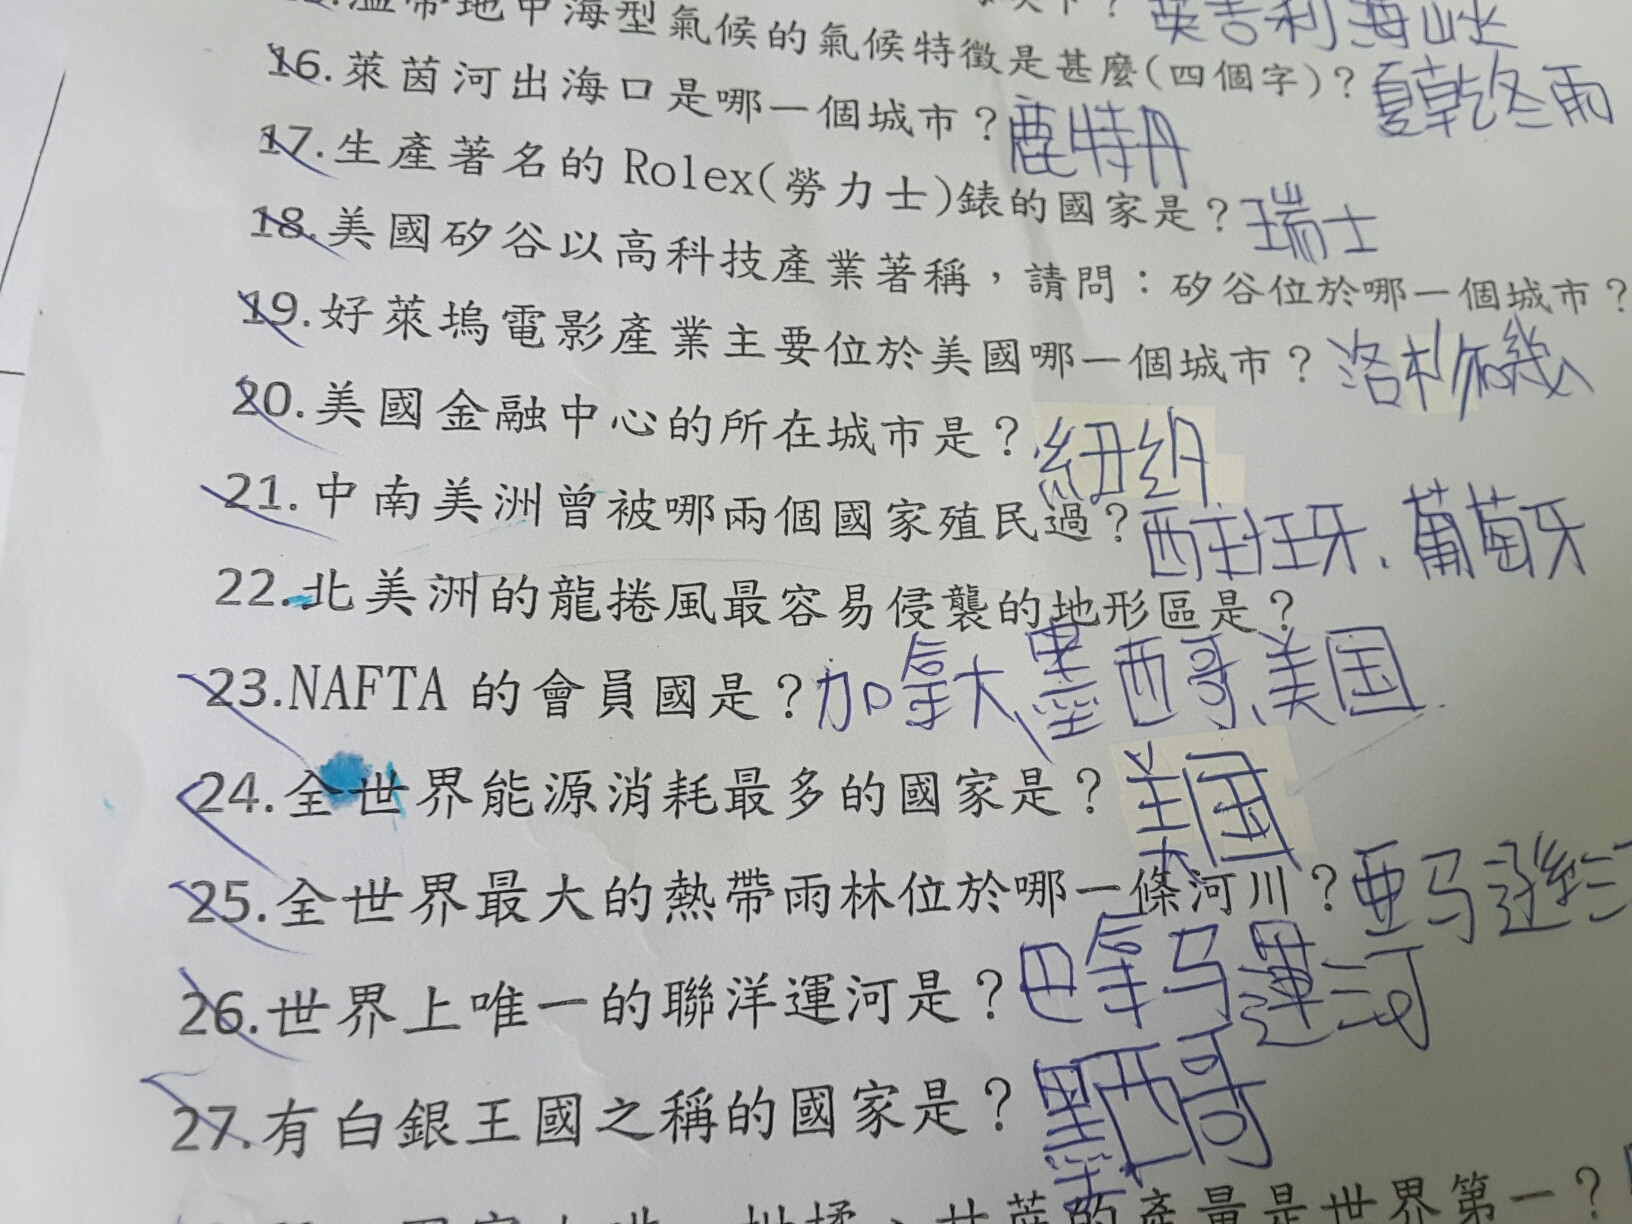 溫帶地中海型氣候的氣候特徵是甚麼(四個字)？夏乾冬雨
英吉利海峽
16.萊茵河出海口是哪一個城市？鹿特丹
17.生產著名的Rolex(勞力士)錶的國家是？瑞士
18.美國矽谷以高科技產業著稱，請問：矽谷位於哪一個城市？
19.好萊塢電影產業主要位於美國哪一個城市？洛杉磯
20.美國金融中心的所在城市是？紐約
21.中南美洲曾被哪兩個國家殖民過？西班牙、葡萄牙
22.北美洲的龍捲風最容易侵襲的地形區是？
23.NAFTA的會員國是？加拿大、墨西哥、美国
24.全世界能源消耗最多的國家是？美国
25.全世界最大的熱帶雨林位於哪一條河川？亞马遜
26.世界上唯一的聯洋運河是？巴拿马運河
27.有白銀王國之稱的國家是？墨西哥
甘蔗的產量是世界第一？